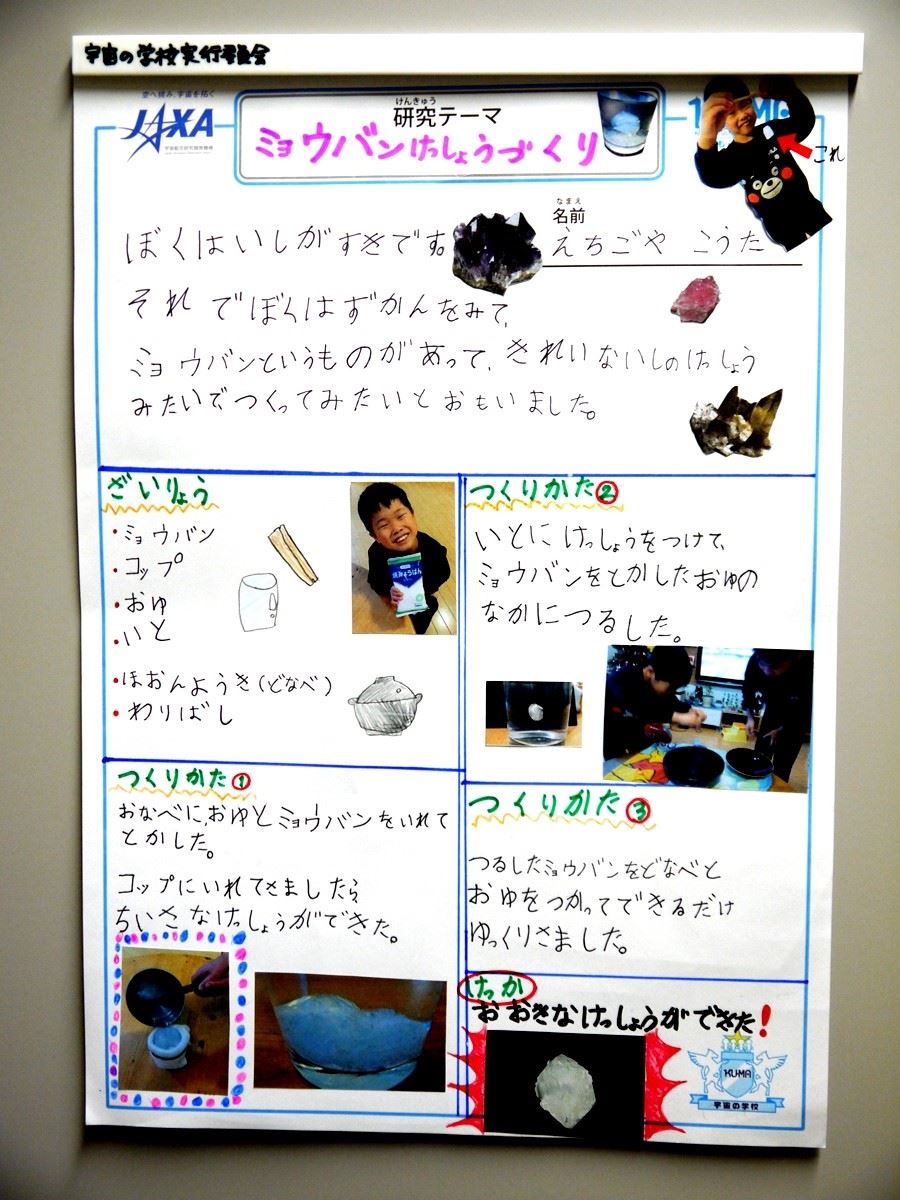 宇宙の学校実行委員会
空へ挑み、宇宙を拓く
JAXA
宇宙航空研究開発機構
けんきゅう
研究テーマ
ミョウバンけっしょうづくり
これ
なまえ
名前
えちごや こうた
ぼくはいしがすきです。
それでぼくはずかんをみて、
ミョウバンというものがあって、きれいないしのけっしょう
みたいでつくってみたいとおもいました。
ざいりょう
・ミョウバン
・コップ
・おゆ
・いと
・ほおんようき(どなべ)
・わりばし
つくりかた①
おなべに、おゆとミョウバンをいれて
とかした。
コップにいれてさましたら
ちいさなけっしょうができた。
つくりかた②
いとにけっしょうをつけて、
ミョウバンをとかしたおゆの
なかにつるした。
つくりかた③
つるしたミョウバンをどなべと
おゆをつかってできるだけ
ゆっくりさました。
けっか
おおきなけっしょうができた!
KUMA
宇宙の学校